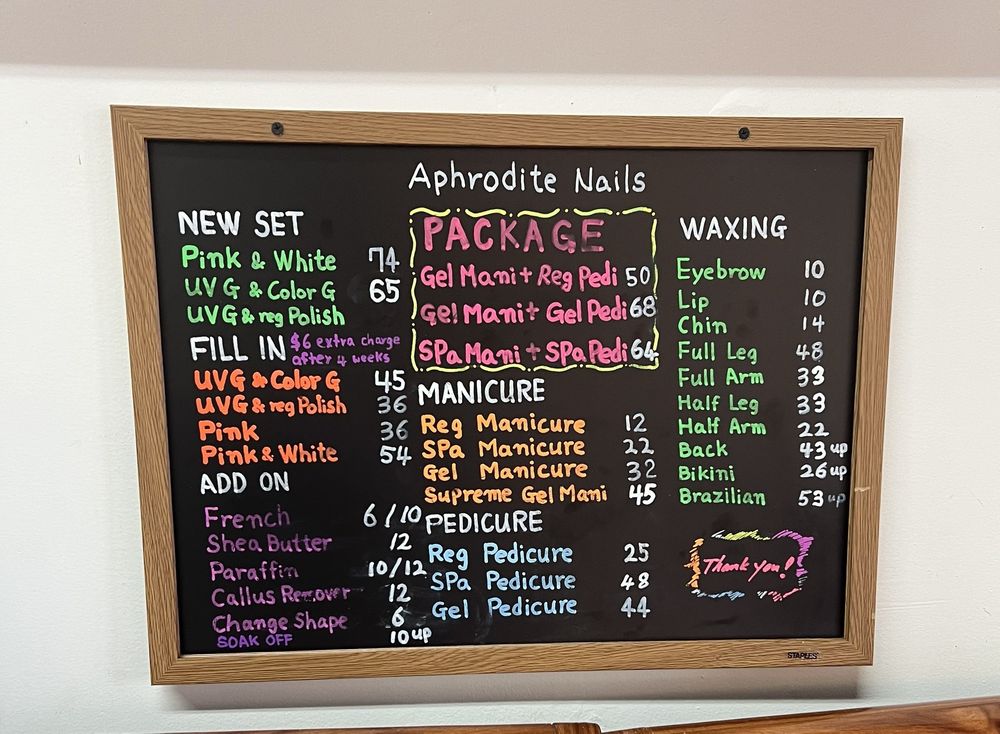 Aphrodite Nails
NEW SET
Pink & White 74
UV G & Color G 65
UV G & reg Polish
FILL IN $6 extra charge after 4 weeks
UVG & Color G 45
UVG & reg Polish 36
Pink 36
Pink & White 54
ADD ON
French 6/10
Shea Butter 12
Paraffin 10/12
Callus Remover 12
Change Shape 6
SOAK OFF 10 up
PACKAGE
Gel Mani + Reg Pedi 50
Gel Mani + Gel Pedi 68
SPa Mani + SPa Pedi 64
MANICURE
Reg Manicure 12
SPa Manicure 22
Gel Manicure 32
Supreme Gel Mani 45
PEDICURE
Reg Pedicure 25
SPa Pedicure 48
Gel Pedicure 44
WAXING
Eyebrow 10
Lip 10
Chin 14
Full Leg 48
Full Arm 33
Half Leg 33
Half Arm 22
Back 43 up
Bikini 26 up
Brazilian 53 up
Thank you!
STAPLES